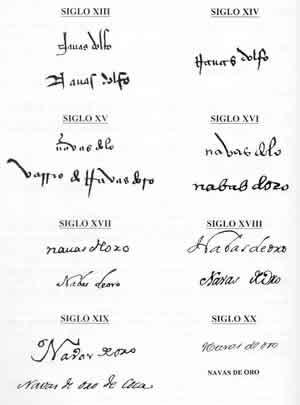 SIGLO XIII
nauas dolfo
Nauas dolfo
SIGLO XIV
Nauas dolfo
SIGLO XV
navas de lo
Varrio de Navas doro
SIGLO XVI
nabas de lo
nabas doro
SIGLO XVII
nauas d oro
Nabas de oro
SIGLO XVIII
Nabas de oro
Navas de Oro
SIGLO XIX
Navas de oro
Navas de oro de Coca
SIGLO XX
Navas de oro
NAVAS DE ORO